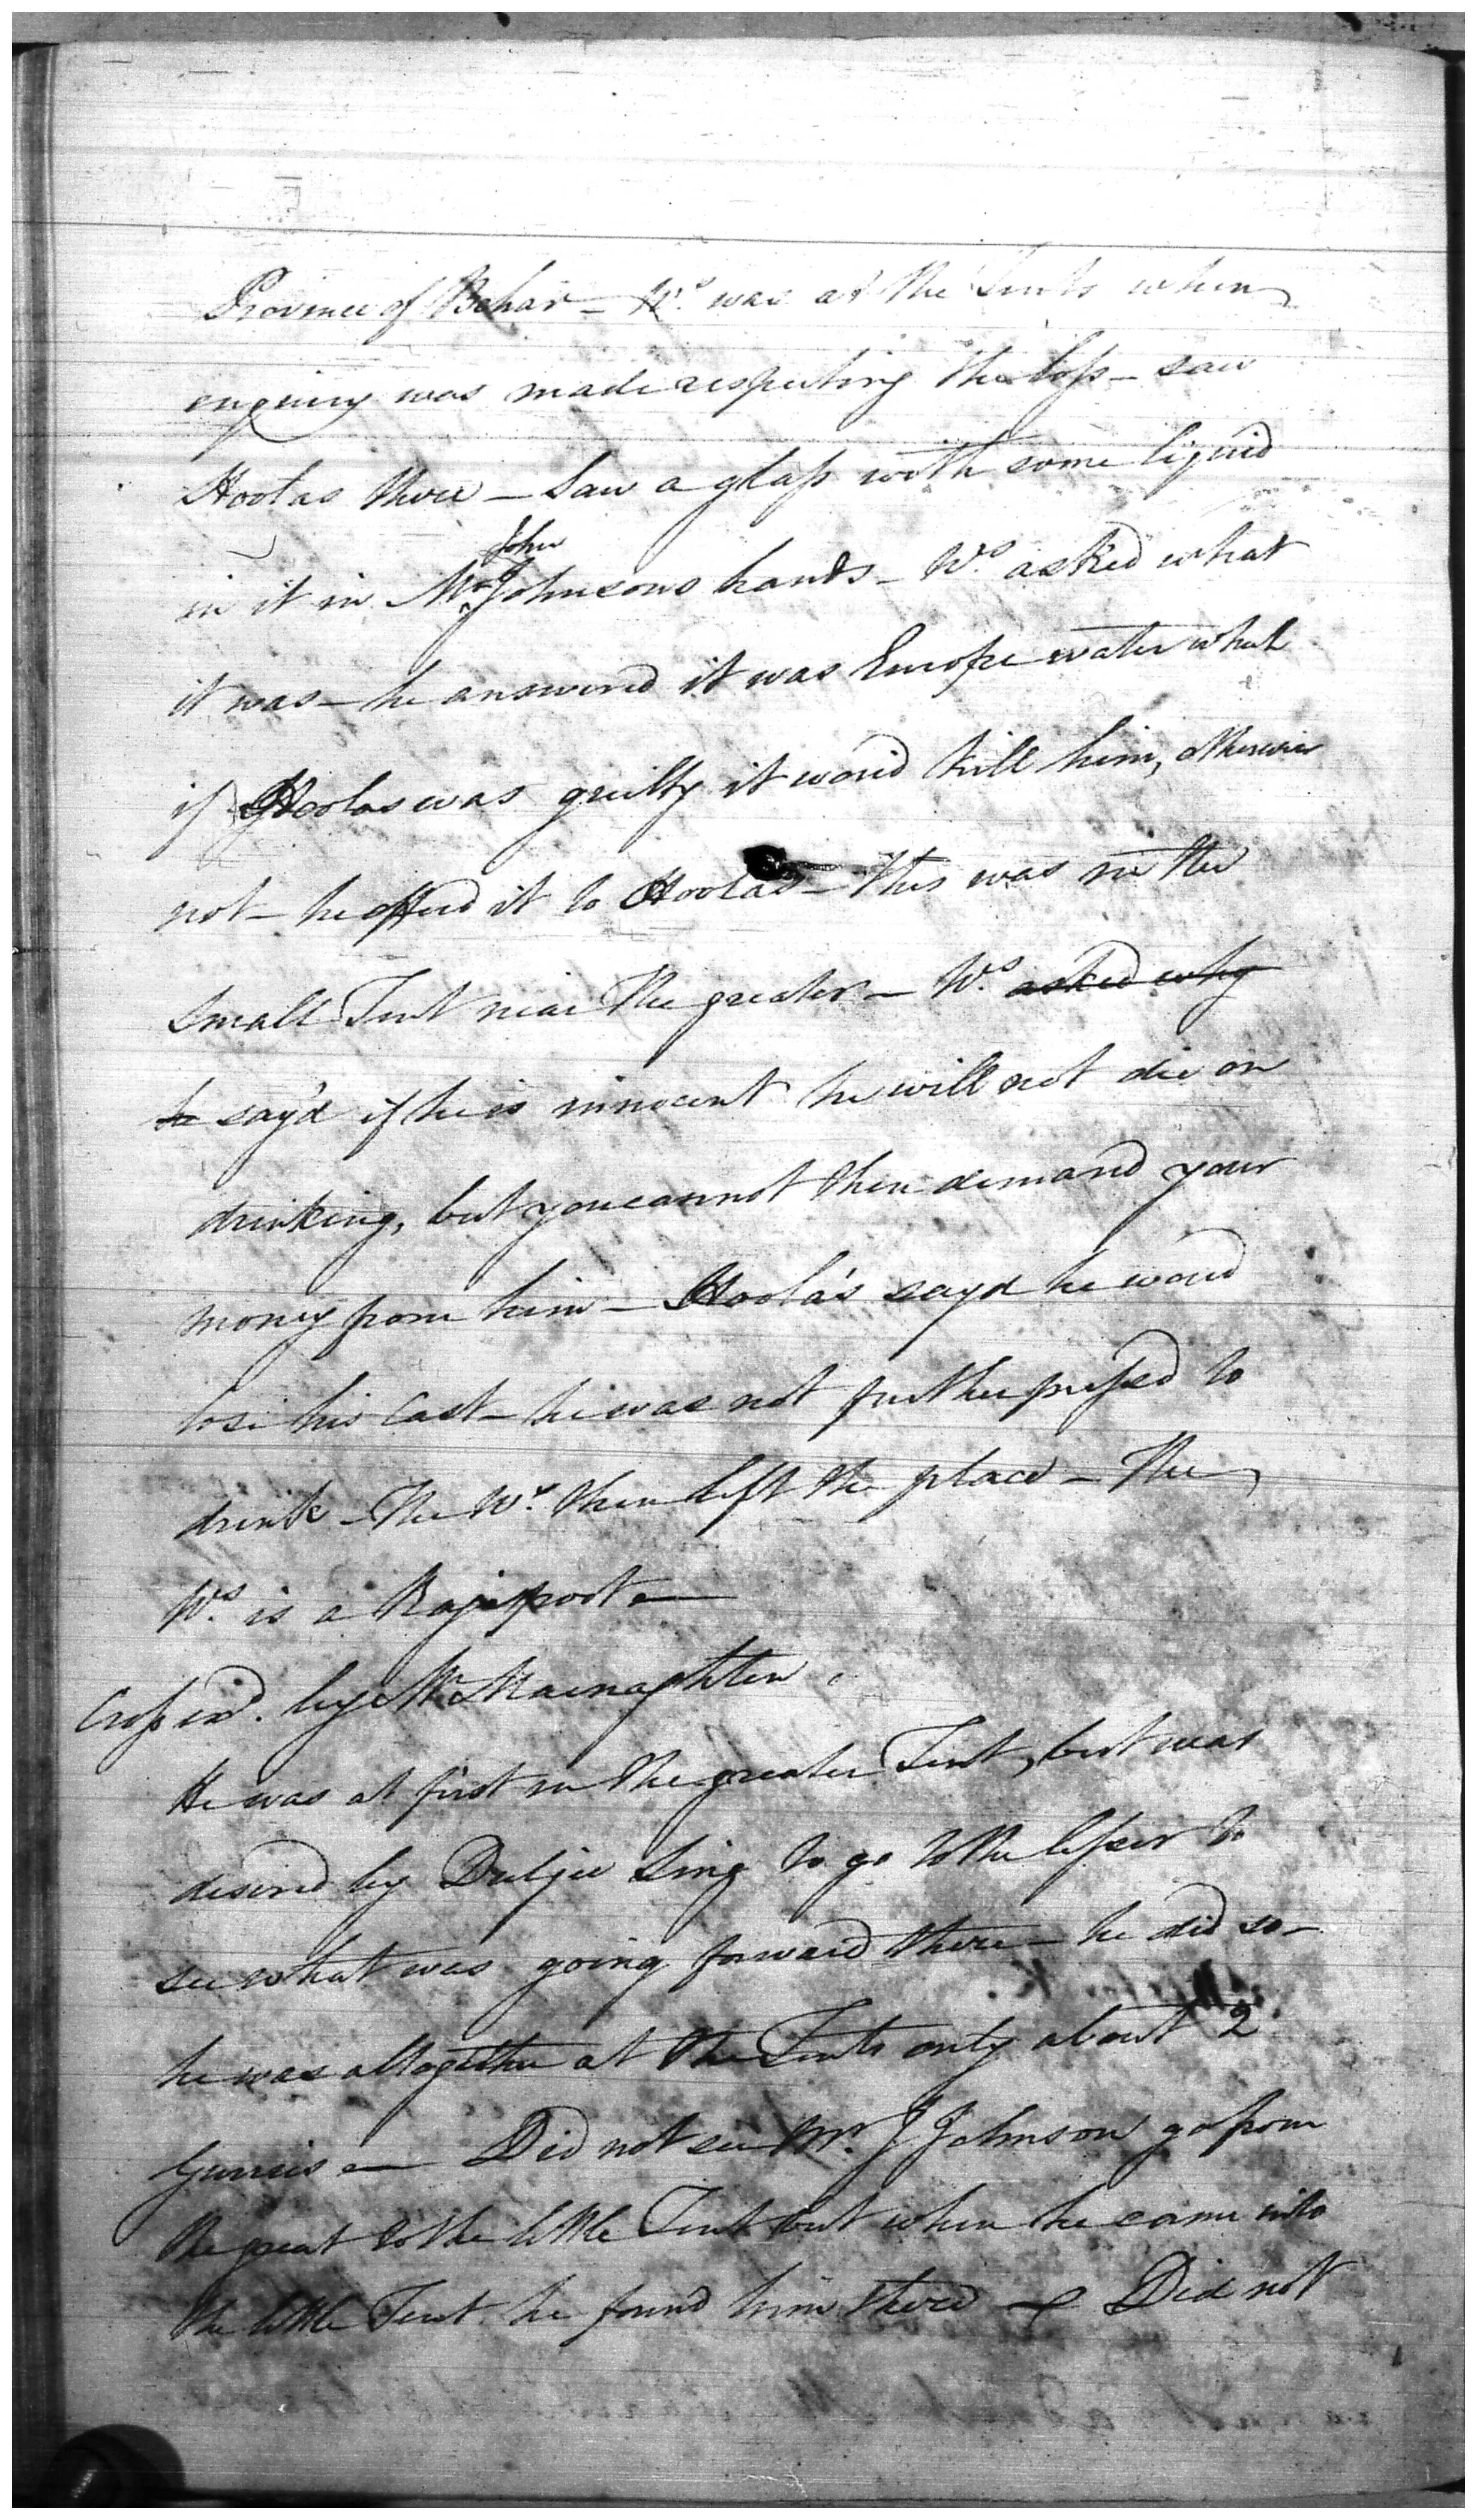 Province of Bahar – Ws. was at the Tents when
enquiry was made respecting the loss – saw
Hoolas there – Saw a glass with some liquid
in it in Mr. John Johnsons hands – Ws. asked what
it was – he answered it was Europe water which
if Hoolas was guilty it woud kill him, otherwise
not – he offerd it to Hoolas – this was in the
small Tent near the greater – Ws. asked why
he sayd if he is innocent he will not die on
drinking, but you cannot then demand your
money from him – Hoola's sayd he woud
lose his Cast – he was not further pressed to
drink – The Ws. then left the place – The
Ws. is a Rajepoot –
Cross exd. by Mr Macnaghten
He was at first in the greater Tent, but was
desired by Duljee Sing to go to the lesser to
see what was going forward there – he did so –
he was altogether at the Tents only about 2
Gurries – Did not see Mr. J Johnson go from
the great to the little Tent but when he came into
the little Tent he found him there – Did not